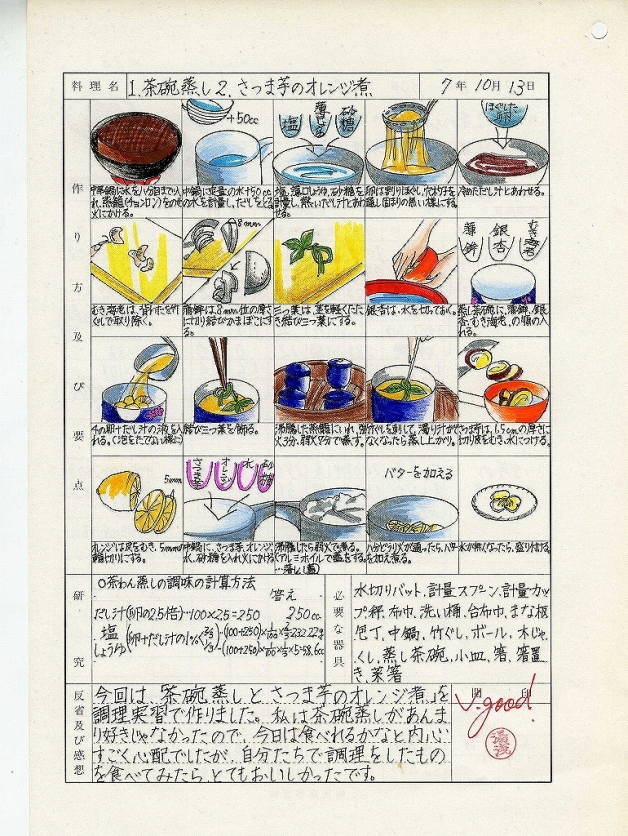 料理名
1.茶碗蒸し 2.さつま芋のオレンジ煮
7年10月13日
作り方及び要点
+50cc
塩
薄口しょうゆ
砂糖
ほぐした卵
冷めただし汁とあわせる。
8mm
蒲鉾
銀杏
むき海老
むき海老は、背わたを竹ぐしで取り除く。
蒲鉾は、8mm位の厚さに切り結びかまぼこにする。
三つ葉は、茎を軽くたたき結び三つ葉にする。
銀杏は、水を切っておく。
蒸し茶碗に、蒲鉾、銀杏、むき海老、の順の入れる。
結び三つ葉を飾る。
さつま芋は、1.5cmの厚さに切り皮をむき、水につける。
5mm
さつま芋
オレンジ
水
砂糖
バターを加える
オレンジは皮をむき、5mmの輪切りにする。
中鍋に、さつま芋、オレンジ、水、砂糖を入れ火にかける。
沸騰したら弱火で煮る。
水が無くなったら、盛り付ける。
研究
○茶わん蒸しの調味の計算方法
答え
だし汁(卵の2.5倍)…100×2.5=250 250cc
塩
しょうゆ
必要な器具
水切りバット、計量スプーン、計量カッ
プ、秤、布巾、洗い桶、台布巾、まな板
包丁、中鍋、竹ぐし、ボール、木じゃ
くし、蒸し茶碗、小皿、箸、箸置
き、菜箸
反省及び感想
今回は、「茶碗蒸しとさつま芋のオレンジ煮」を
調理実習で作りました。私は茶碗蒸しがあんま
り好きじゃなかったので、今日は食べれるかなと内心
すごく心配でしたが、自分たちで調理をしたもの
を食べてみたら、とてもおいしかったです。
閲印
V.good!